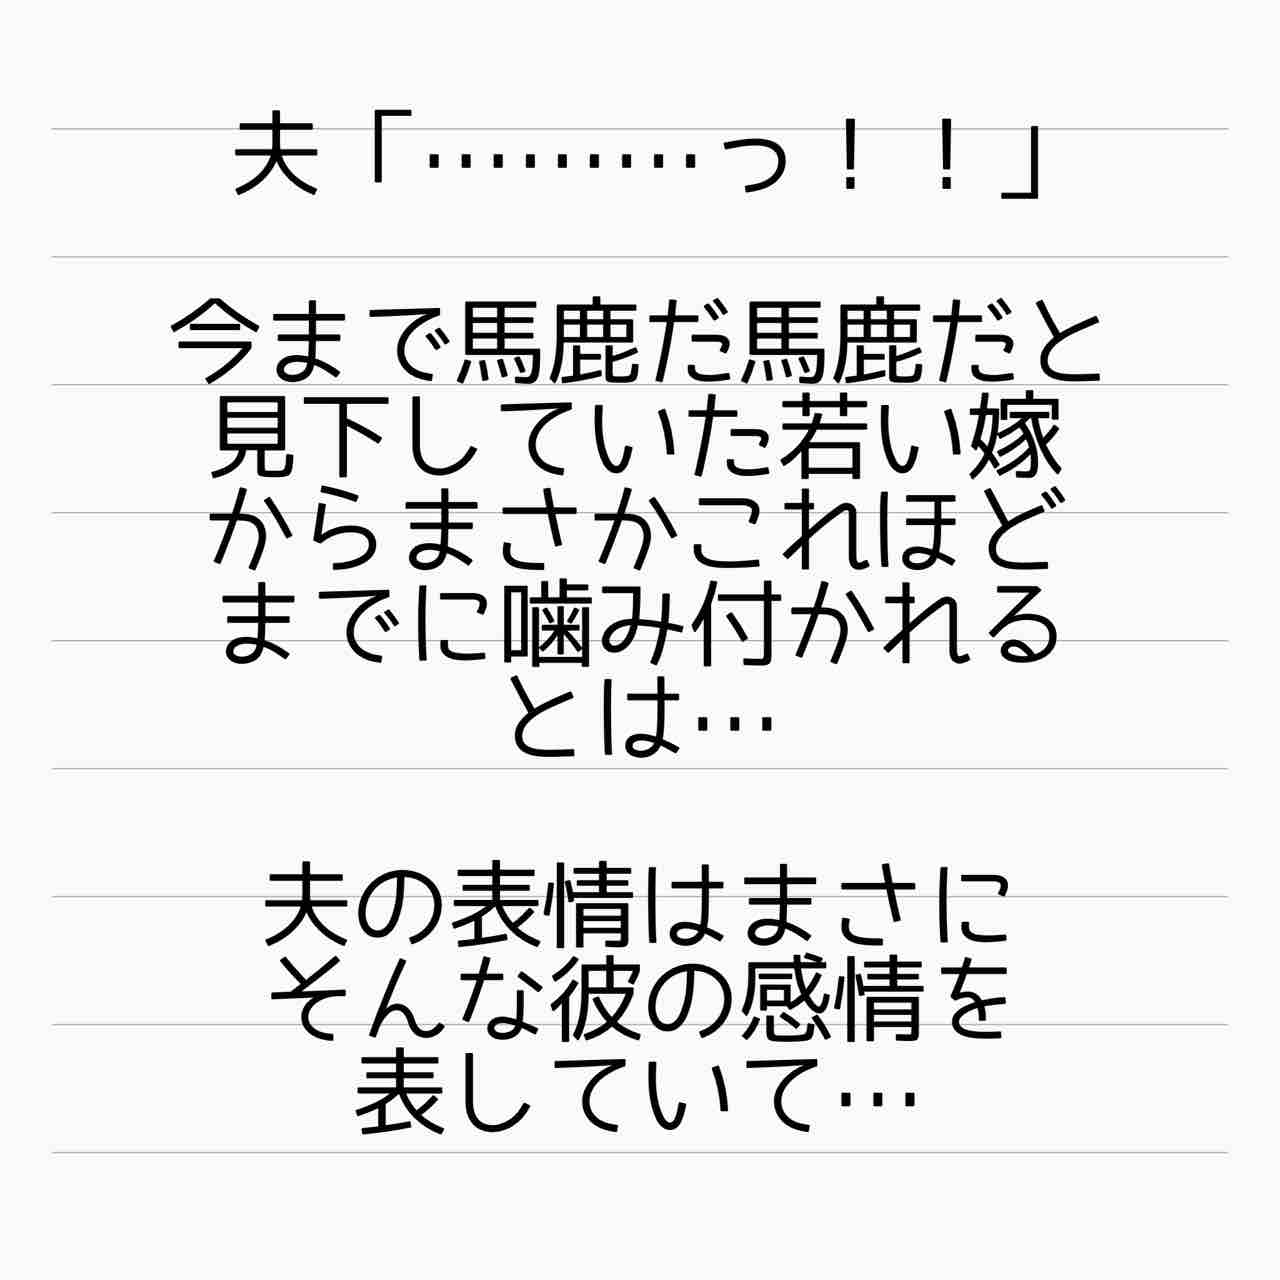 夫「………っ！！」
今まで馬鹿だ馬鹿だと
見下していた若い嫁
からまさかこれほど
までに噛み付かれる
とは…
夫の表情はまさに
そんな彼の感情を
表していて…